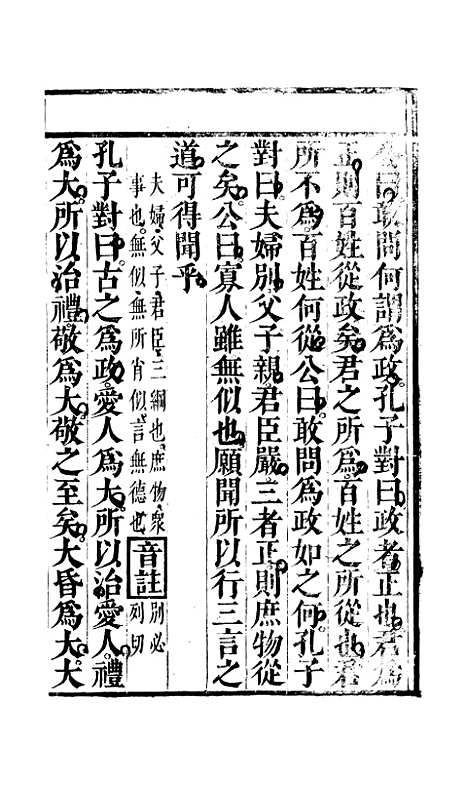 公曰敢問何謂爲政孔子對曰政者正也君爲
正則百姓從政矣君之所爲百姓之所從也君
所不爲百姓何從公曰敢問爲政如之何孔子
對曰夫婦別父子親君臣嚴三者正則庶物從
之矣公曰寡人雖無似也願聞所以行三言之
道可得聞乎
夫婦父子君臣三綱也庶物衆
事也無似無所肖似言無德也
音註
別必
列切
孔子對曰古之爲政愛人爲大所以治愛人禮
爲大所以治禮敬爲大敬之至矣大昏爲大大